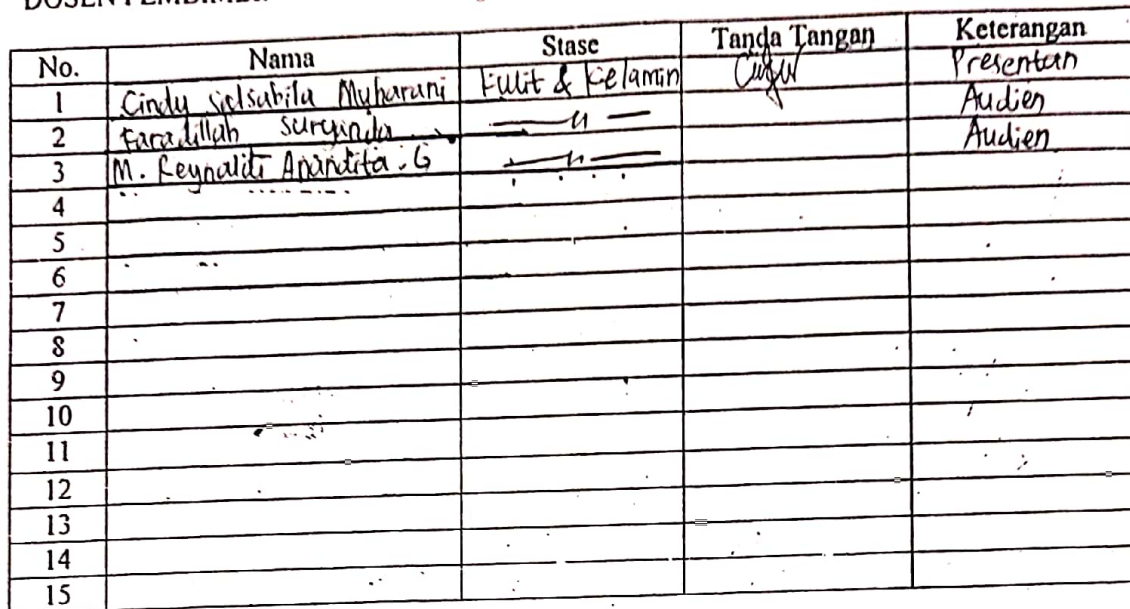 No. Nama Stase Tanda Tangan Keterangan
1 Cindy Salsabila Muharani Kulit & Kelamin Presentan
2 Faradillah Suryinda — 〃 — Audien
3 M. Reynaldi Anandita . G — 〃 — Audien
4
5
6
7
8
9
10
11
12
13
14
15